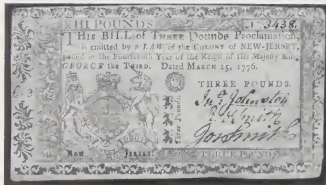 III POUNDS. 3438.
THIS BILL of THREE Pounds Proclamation,
is emitted by a LAW of the COLONY of NEW-JERSEY,
passed in the Fourteenth Year of the Reign of His Majesty King
GEORGE the THIRD. Dated MARCH 25, 1776.
THREE POUNDS.
Three Pounds.
Johnston
Smith
Smith
NEW JERSEY
THREE POUNDS